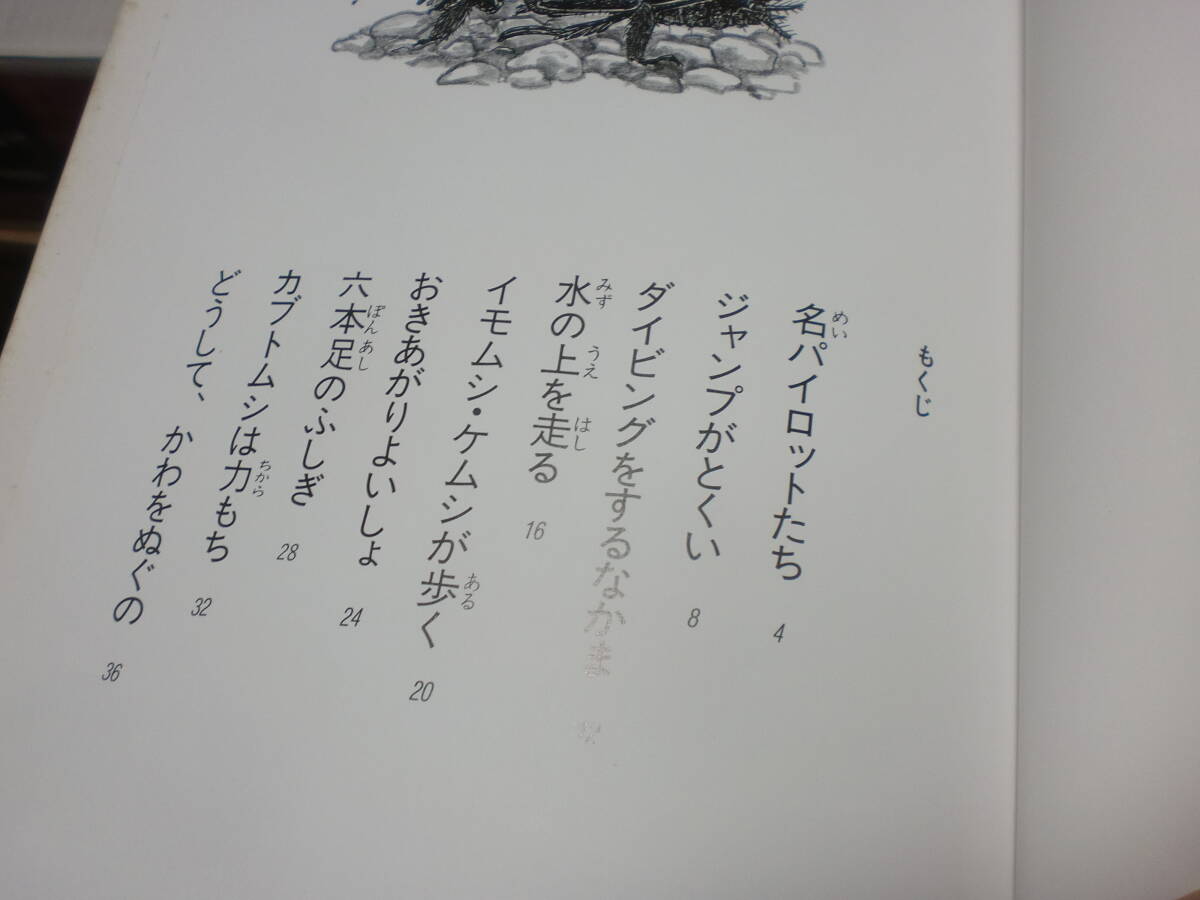 もくじ
名パイロットたち 4
ジャンプがとくい 8
ダイビングをするなかま
水の上を走る 16
イモムシ・ケムシが歩く 20
おきあがりよいしょ 24
六本足のふしぎ 28
カブトムシは力もち 32
どうして、かわをぬぐの 36
めい
みず
うえ
はし
ある
ぽん
あし
ちから